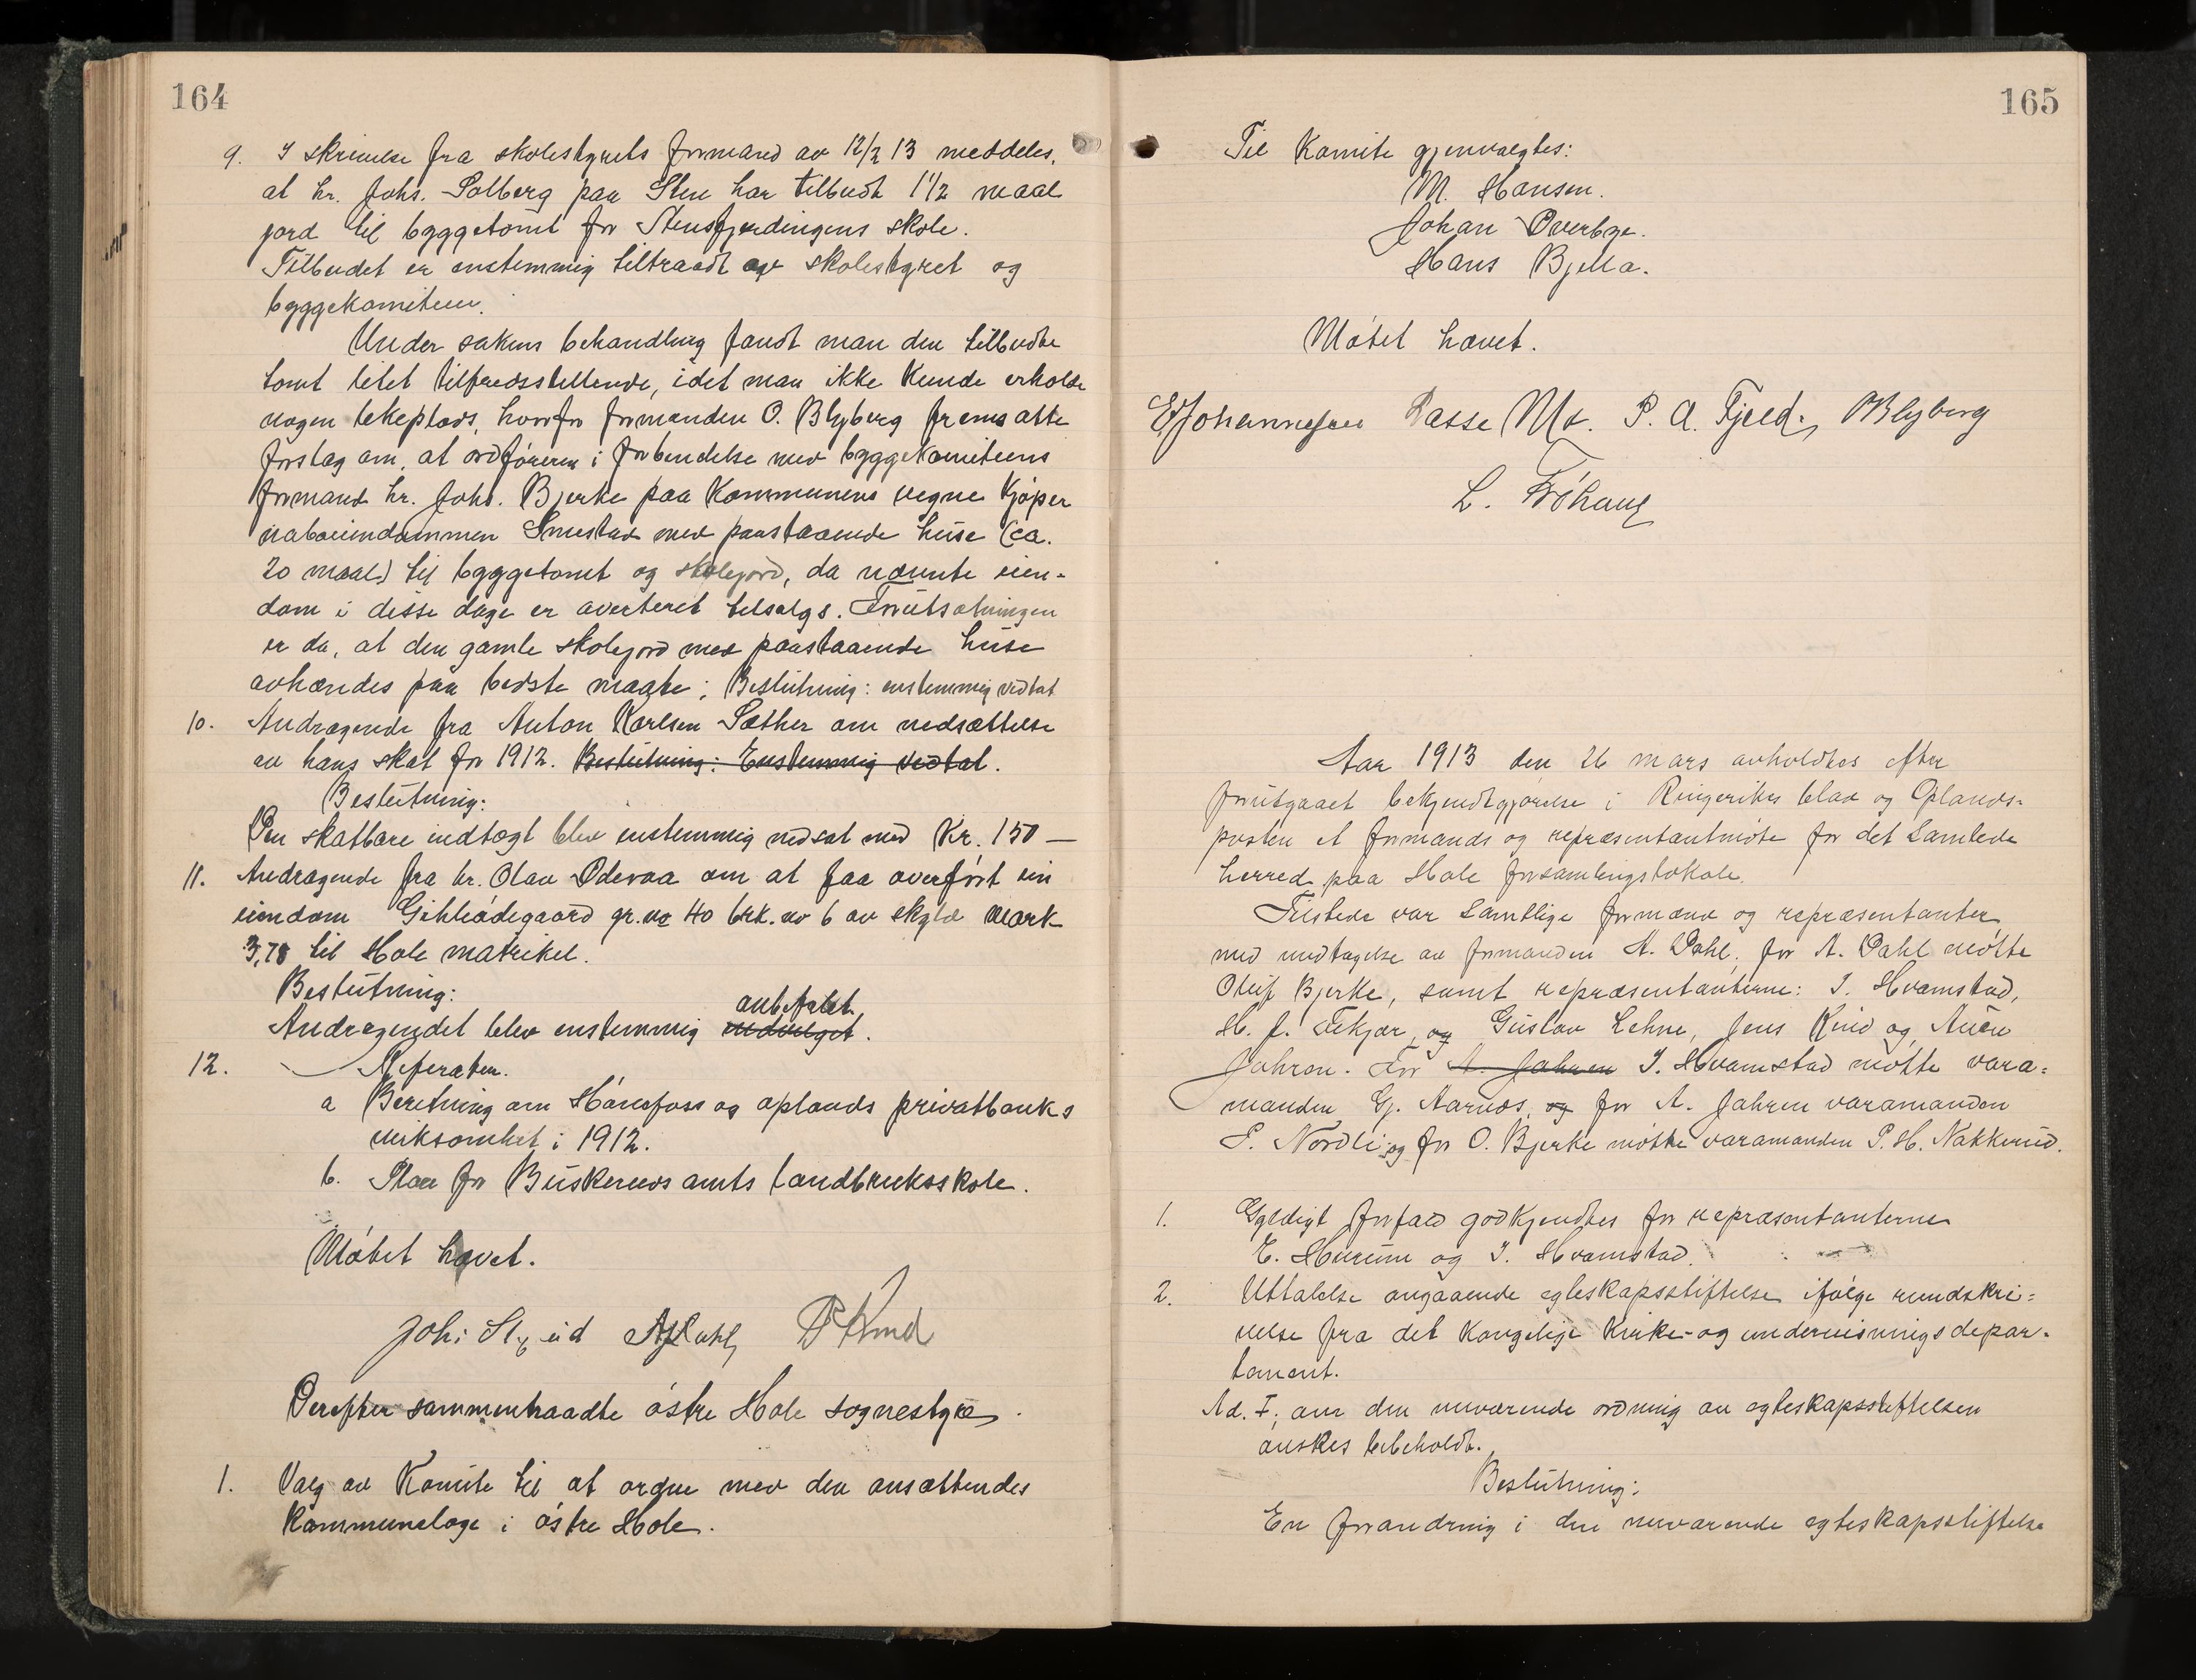 164
9. I skrivelse fra skolestyrets formand av 12/2 13 meddeles,
at hr. Johs. Solberg paa Sten har tilbudt 1 1/2 maal
jord til byggetomt for Stensfjerdingens skole.
Tilbudet er enstemmig tiltraadt av skolestyret og
byggekomiteen.
Under sakens behandling fandt man den tilbudte
tomt litet tilfredsstillende, idet man ikke kunde erholde
nogen lekeplads, hvorfor formanden O. Blyberg fremsatte
forslag om, at ordføreren i forbindelse med byggekomiteens
formand hr. Johs. Bjerke paa kommunens vegne kjøper
naboeiendommen Smestad med paastaaende huse (ca.
20 maal) til byggetomt og skolejord, da nævnte eien-
dom i disse dage er averteret tilsalgs. Forutsætningen
er da, at den gamle skolejord med paastaaende huse
avhændes paa bedste maate; Beslutning: enstemmig vedtat
10. Andragende fra Anton Karlsen Sæther om nedsættelse
av hans skat for 1912. Beslutning: Enstemmig vedtat.
Beslutning:
Den skatbare indtægt blev enstemmig nedsat med Kr. 150 —
11. Andragende fra hr. Olav Ødevaa om at faa overført sin
eiendom gr. no 40 brk. no 6 av skyld mark
3,78 til Hole matrikel.
Beslutning:
anbefalet.
Andragendet blev enstemmig indvilget.
12. Referater.
a Beretning om Hønefoss og oplands privatbanks
virksomhet i 1912.
b. Plan for Buskeruds amts landbruksskole.
Møtet hævet.
Johs
Derefter sammentraadte østre Hole sognestyre.
1. Valg av Komite til at ordne med den ansættendes
Kommunelæge i østre Hole.
165
Til Komite gjenvalgtes:
M. Hansen.
Johan Øverbye.
Hans Bjella.
Møtet hævet.
E Johannessen Lasse Mo. P. A. Fjeld. O Blyberg
L. Frøhaug
Aar 1913 den 26 mars avholdtes efter
forutgaaet bekjendtgjørelse i Ringerikes blad og Oplands-
posten et formands og repræsentantmøte for det samlede
herred paa Hole forsamlingslokale.
Tilstede var samtlige formænd og repræsentanter
med undtagelse av formanden A. Dahl, for A. Dahl møtte
Oluf Bjerke, samt repræsentanterne: I. Hvamstad,
H. J. Fekjær, og Gustav Lehne, Jens Rud og Auen
Jahren. For A. Jahren I. Hvamstad møtte vara-
manden Gj. Aarnæs, og for A. Jahren varamanden
P. Nordli og for O. Bjerke møtte varamanden P. H. Nakkerud.
1. Gyldigt forfald godkjendtes for repræsentanterne
E. Hurum og I. Hvamstad.
2. Uttalelse angaaende egteskapsstiftelse ifølge rundskri-
velse fra det kongelige Kirke- og undervisningsdepar-
tement.
Ad. I; om den nuværende ordning av egteskapsstiftelsen
ønskes bibeholdt.
Beslutning:
En forandring i den nuværende egteskapsstiftelse